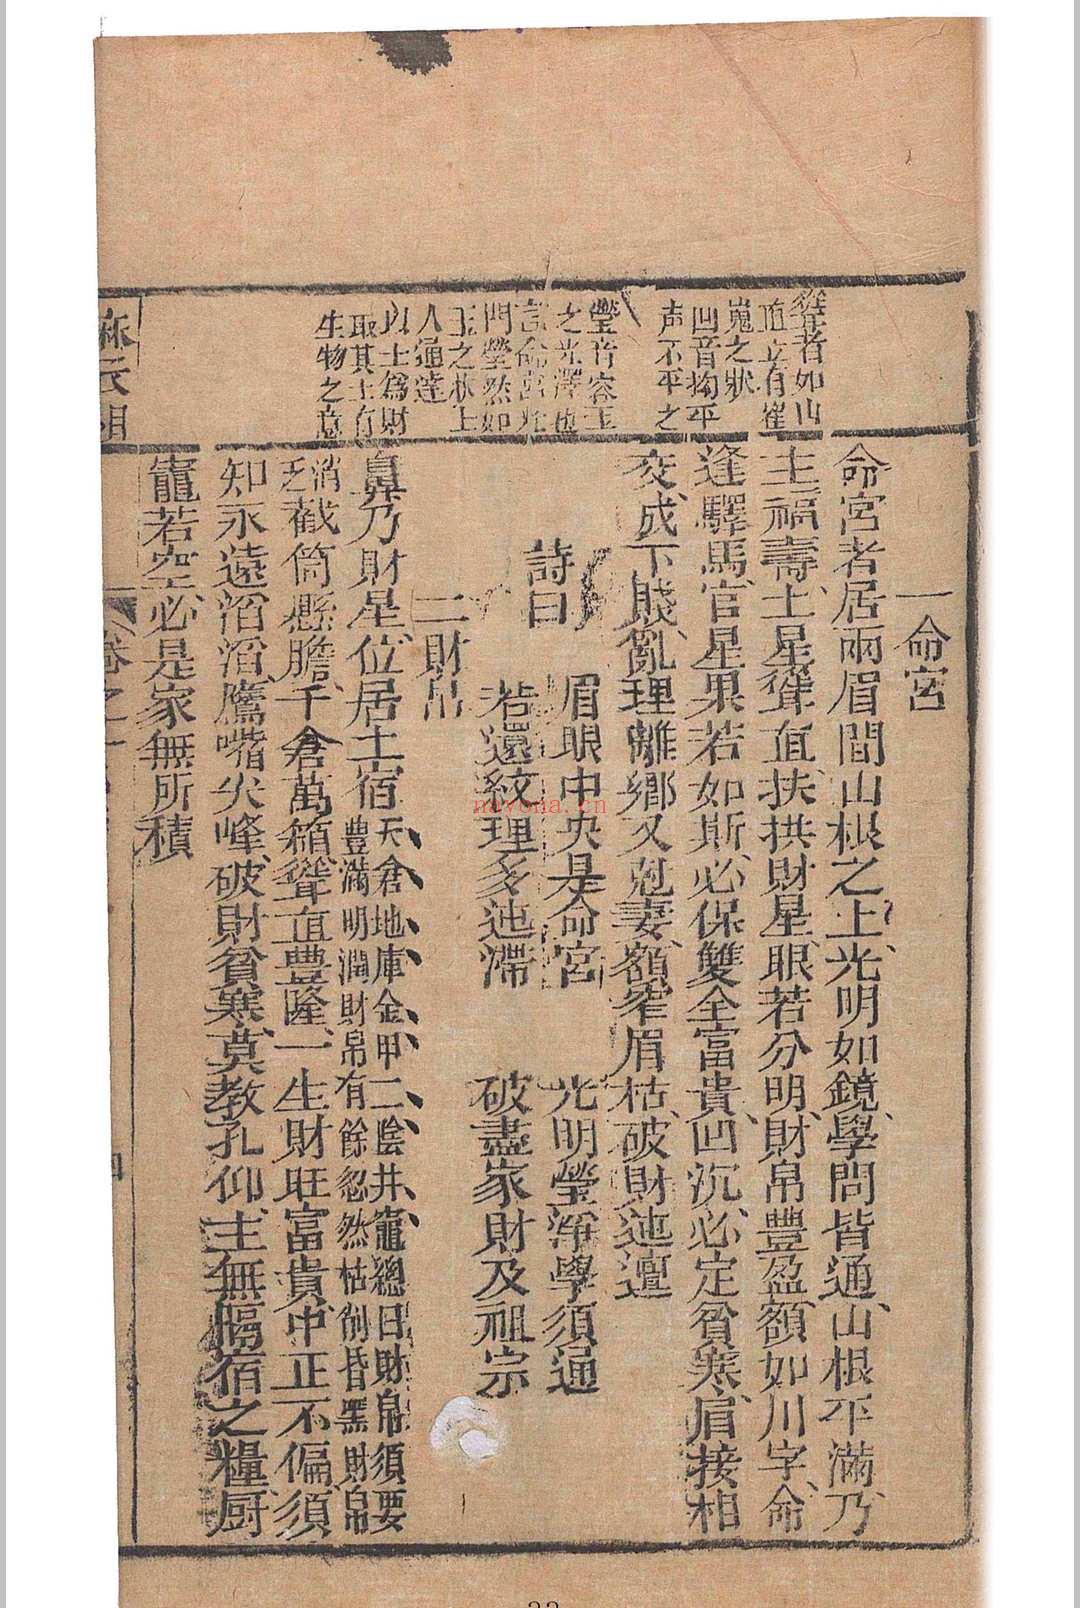 聳者如山
直立有崔
嵬之狀
凹音拗平
声不平之
瑩音容玉
之光澤也
言命宮光
門瑩然如
玉之狀上
人通達
以土爲財
取其土有
生物之意
一命宮
命宮者居兩眉間山根之上光明如鏡學問皆通山根平滿乃
主福壽土星聳直扶拱財星眼若分明財帛豐盈額如川字命
逢驛馬官星果若如斯必保雙全富貴凹沉必定貧寒眉接相
交成下賤亂理離鄉又尅妻額窄眉枯破財迍邅
詩曰
眉眼中央是命宮 光明瑩淨學須通
若還紋理多迍滯 破盡家財及祖宗
二財帛
鼻乃財星位居土宿天倉地庫金甲二陰井竈總曰財帛須要
豐滿明潤財帛有餘忽然枯削昏黑財帛
消乏截筒懸膽千倉萬箱聳直豐隆一生財旺富貴中正不偏須
知永遠滔滔鷹嘴尖峰破財貧寒莫教孔仰主無隔宿之糧厨
竈若空必是家無所積
麻衣相
卷之一
四
nayona.cn